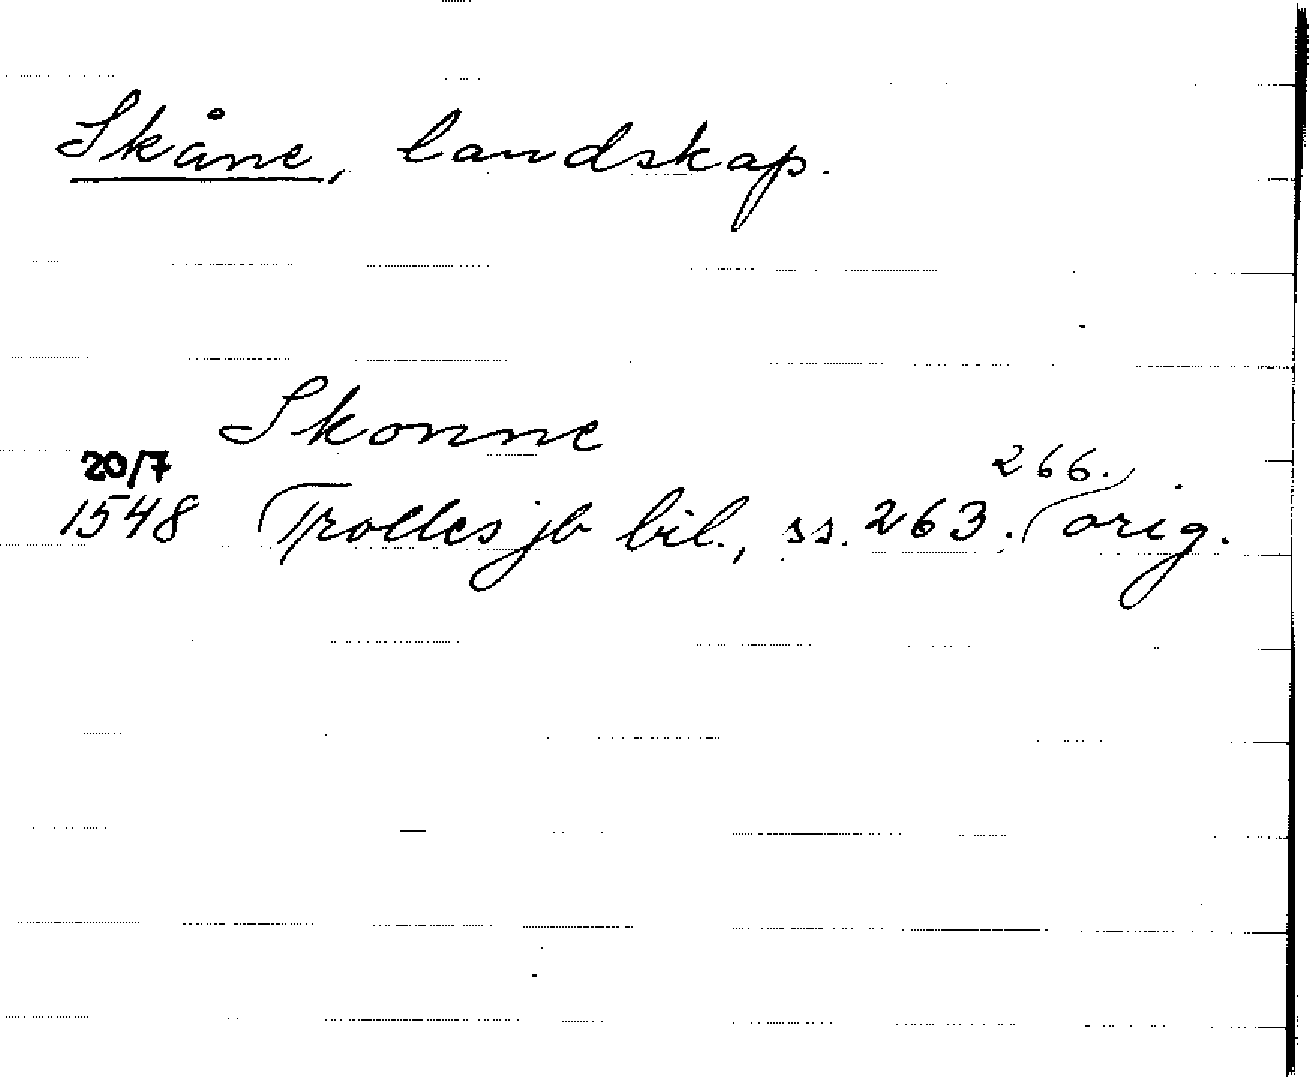 Skåne, landskap.
Skonne
20/7
1548 Trolles jb bil., ss. 263. 266. orig.